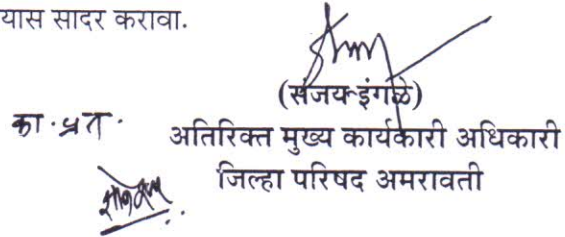 यास सादर करावा.
(संजय इंगळे)
का.प्रत.
अतिरिक्त मुख्य कार्यकारी अधिकारी
जिल्हा परिषद अमरावती